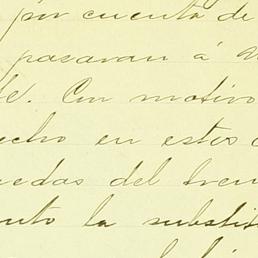 por cuenta de
pasaran á
Con motivo
echo en estos
uedas del tren
uto la substi